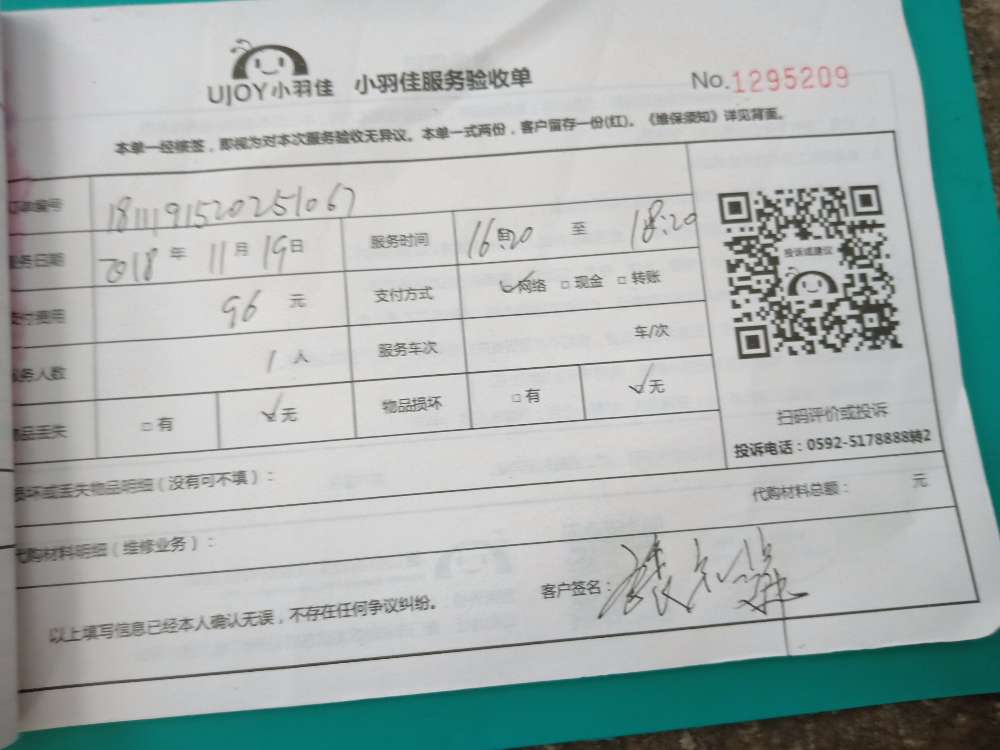 UJOY小羽佳 小羽佳服务验收单 No.1295209
本单一经核签，即视为对本次服务验收无异议。本单一式两份，客户留存一份(红)。《维保须知》详见背面。
单编号 1811191520251067
务日期 2018年11月19日 服务时间 16:20 至 18:20
费用 96元 支付方式 网络 □现金 □转账
务人数 1人 服务车次 车/次
品丢失 □有 无 物品损坏 □有 无
投诉或建议
扫码评价或投诉
投诉电话：0592-5178888转2
损坏或丢失物品明细（没有可不填）：
代购材料明细（维修业务）： 代购材料总额： 元
以上填写信息已经本人确认无误，不存在任何争议纠纷。 客户签名：